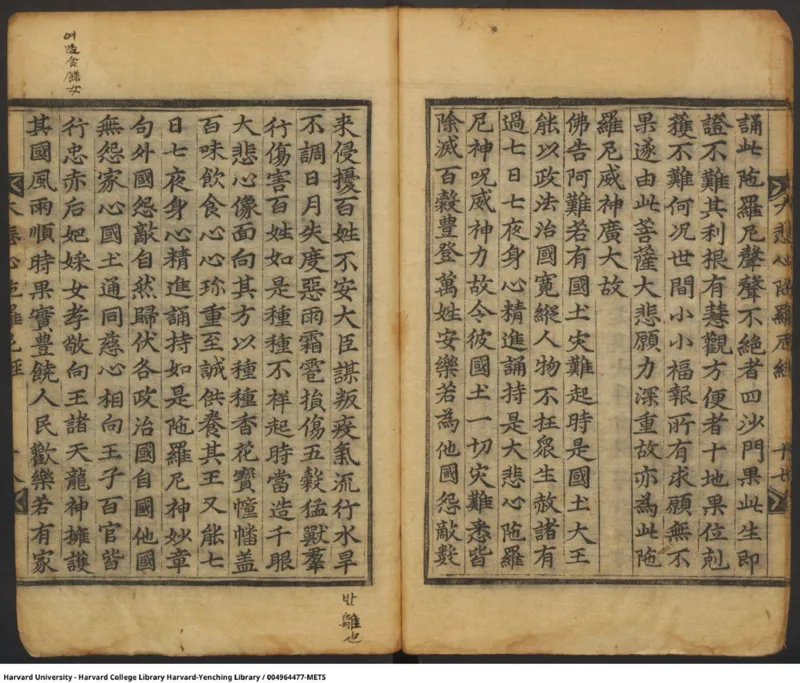 大悲心陁羅尼經 十七
誦此陁羅尼聲聲不絕者四沙門果此生即
證不難其利根有慧觀方便者十地果位剋
獲不難何况世間小小福報所有求願無不
果遂由此菩薩大悲願力深重故亦為此陁
羅尼威神廣大故
佛告阿難若有國土灾難起時是國土大王
能以政法治國寛縱人物不枉衆生赦諸有
過七日七夜身心精進誦持是大悲心陁羅
尼神呪威神力故令彼國土一切灾難悉皆
除滅百穀豊登萬姓安樂若為他國怨敵數
來侵擾百姓不安大臣謀叛疫氣流行水旱
不調日月失度惡雨霜雹損傷五穀猛獸羣
行傷害百姓如是種種不祥起時當造千眼
大悲心像面向其方以種種香花寳幢幡盖
百味飲食心心珎重至誠供養其王又能七
日七夜身心精進誦持如是陁羅尼神妙章
句外國怨敵自然歸伏各政治國自國他國
無怨家心國土通同慈心相向王子百官皆
行忠赤后妃婇女孝敬向王諸天龍神擁護
其國風雨順時果實豊饒人民歡樂若有家
大悲心陁羅尼經 十八
女
也
Harvard University - Harvard College Library Harvard-Yenching Library / 004964477-METS